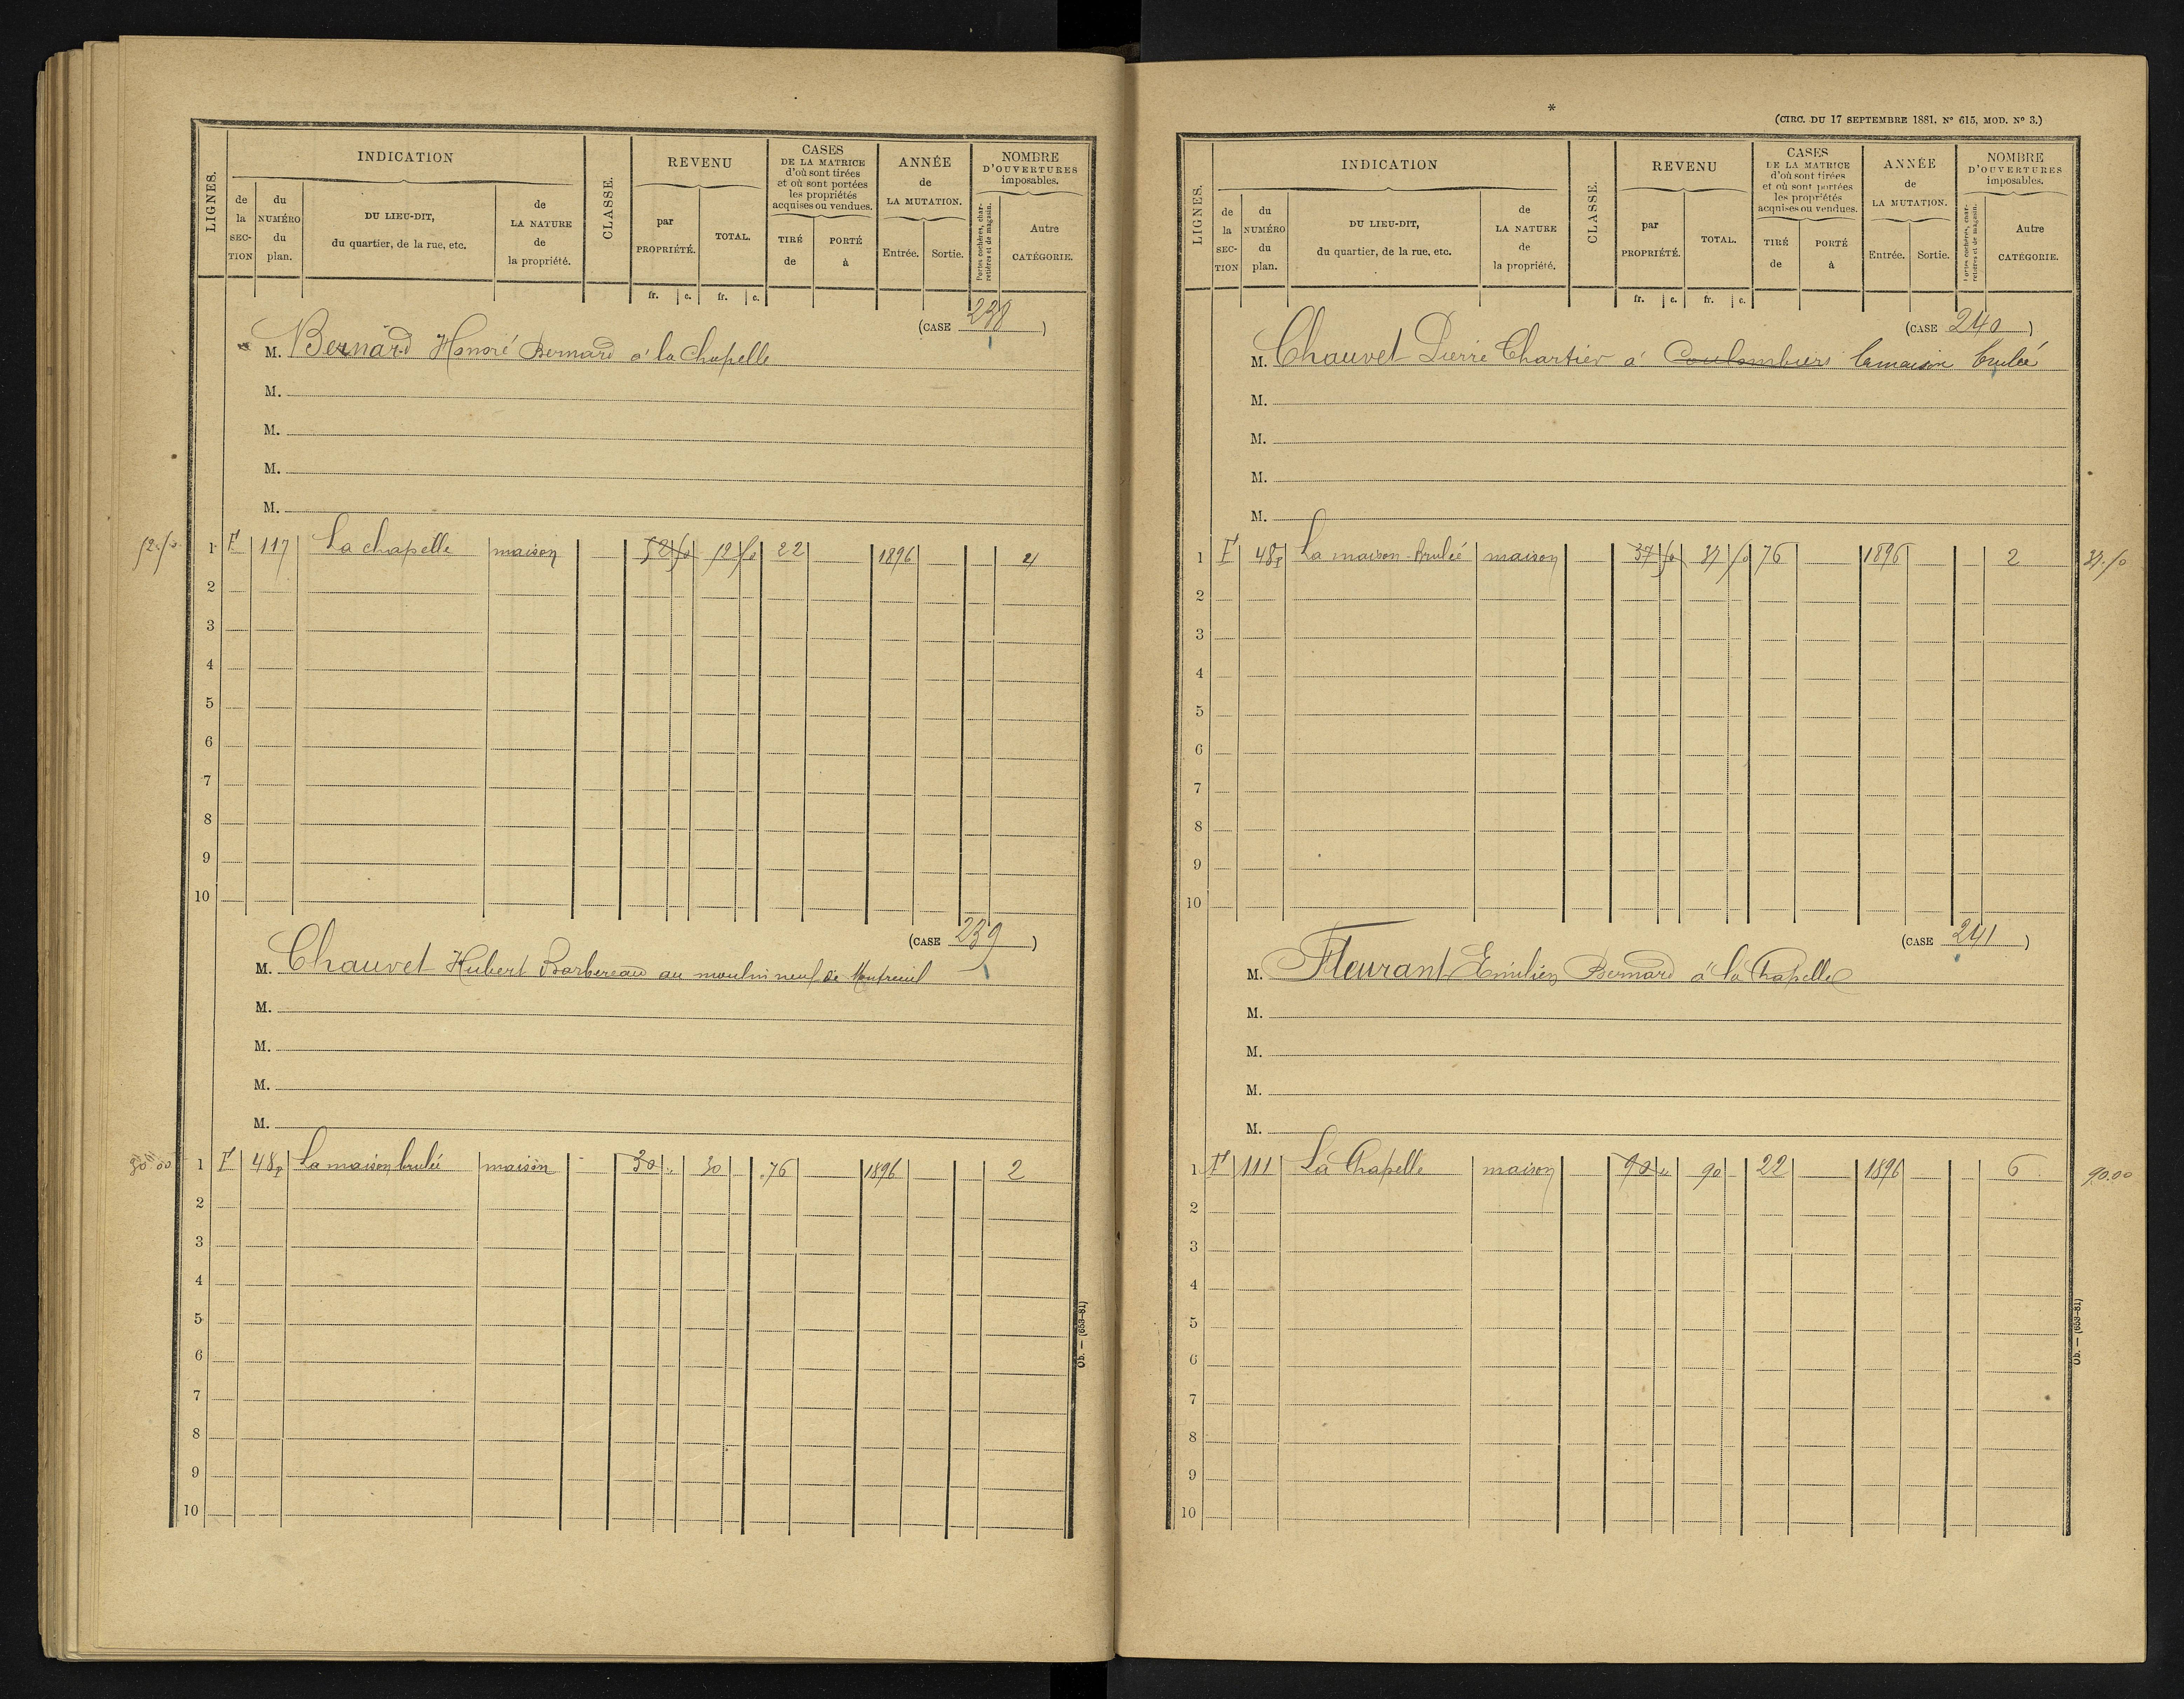 LIGNES.
INDICATION
de la SECTION
du NUMÉRO du plan.
DU LIEU-DIT, du quartier, de la rue, etc.
de LA NATURE de la propriété.
CLASSE.
REVENU
par PROPRIÉTÉ.
TOTAL.
fr. c. fr. c.
CASES DE LA MATRICE d'où sont tirées et où sont portées les propriétés acquises ou vendues.
TIRÉ de
PORTÉ à
ANNÉE de LA MUTATION.
Entrée.
Sortie.
NOMBRE D'OUVERTURES imposables.
Portes cochères, charretières et de magasin.
Autre CATÉGORIE.
(CASE 238)
M. Bernard Honoré Bernard à la Chapelle
M.
M.
M.
M.
52.50 1 F 117 La chapelle maison 52 50 52 50 22 1896 4
2
3
4
5
6
7
8
9
10
(CASE 239)
M. Chauvet Hubert Barbereau au moulin neuf de Montreuil
M.
M.
M.
M.
30.00 1 F 48p La maison brulée maison 30 " 30 76 1896 2
2
3
4
5
6
7
8
9
10
Ob. — (653-81)
*
(CIRC. DU 17 SEPTEMBRE 1881, Nº 615, MOD. Nº 3.)
LIGNES.
INDICATION
de la SECTION
du NUMÉRO du plan.
DU LIEU-DIT, du quartier, de la rue, etc.
de LA NATURE de la propriété.
CLASSE.
REVENU
par PROPRIÉTÉ.
TOTAL.
fr. c. fr. c.
CASES DE LA MATRICE d'où sont tirées et où sont portées les propriétés acquises ou vendues.
TIRÉ de
PORTÉ à
ANNÉE de LA MUTATION.
Entrée.
Sortie.
NOMBRE D'OUVERTURES imposables.
Portes cochères, charretières et de magasin.
Autre CATÉGORIE.
(CASE 240)
M. Chauvet Pierre Chartier à Coulombiers la maison brulée
M.
M.
M.
M.
1 F 48p La maison brulée maison 37 50 37 50 76 1896 2 37.50
2
3
4
5
6
7
8
9
10
(CASE 241)
M. Fleurant Emilien Bernard à la Chapelle
M.
M.
M.
M.
1 F 111 La Chapelle maison 90 " 90 22 1896 6 90.00
2
3
4
5
6
7
8
9
10
Ob. — (653-81)